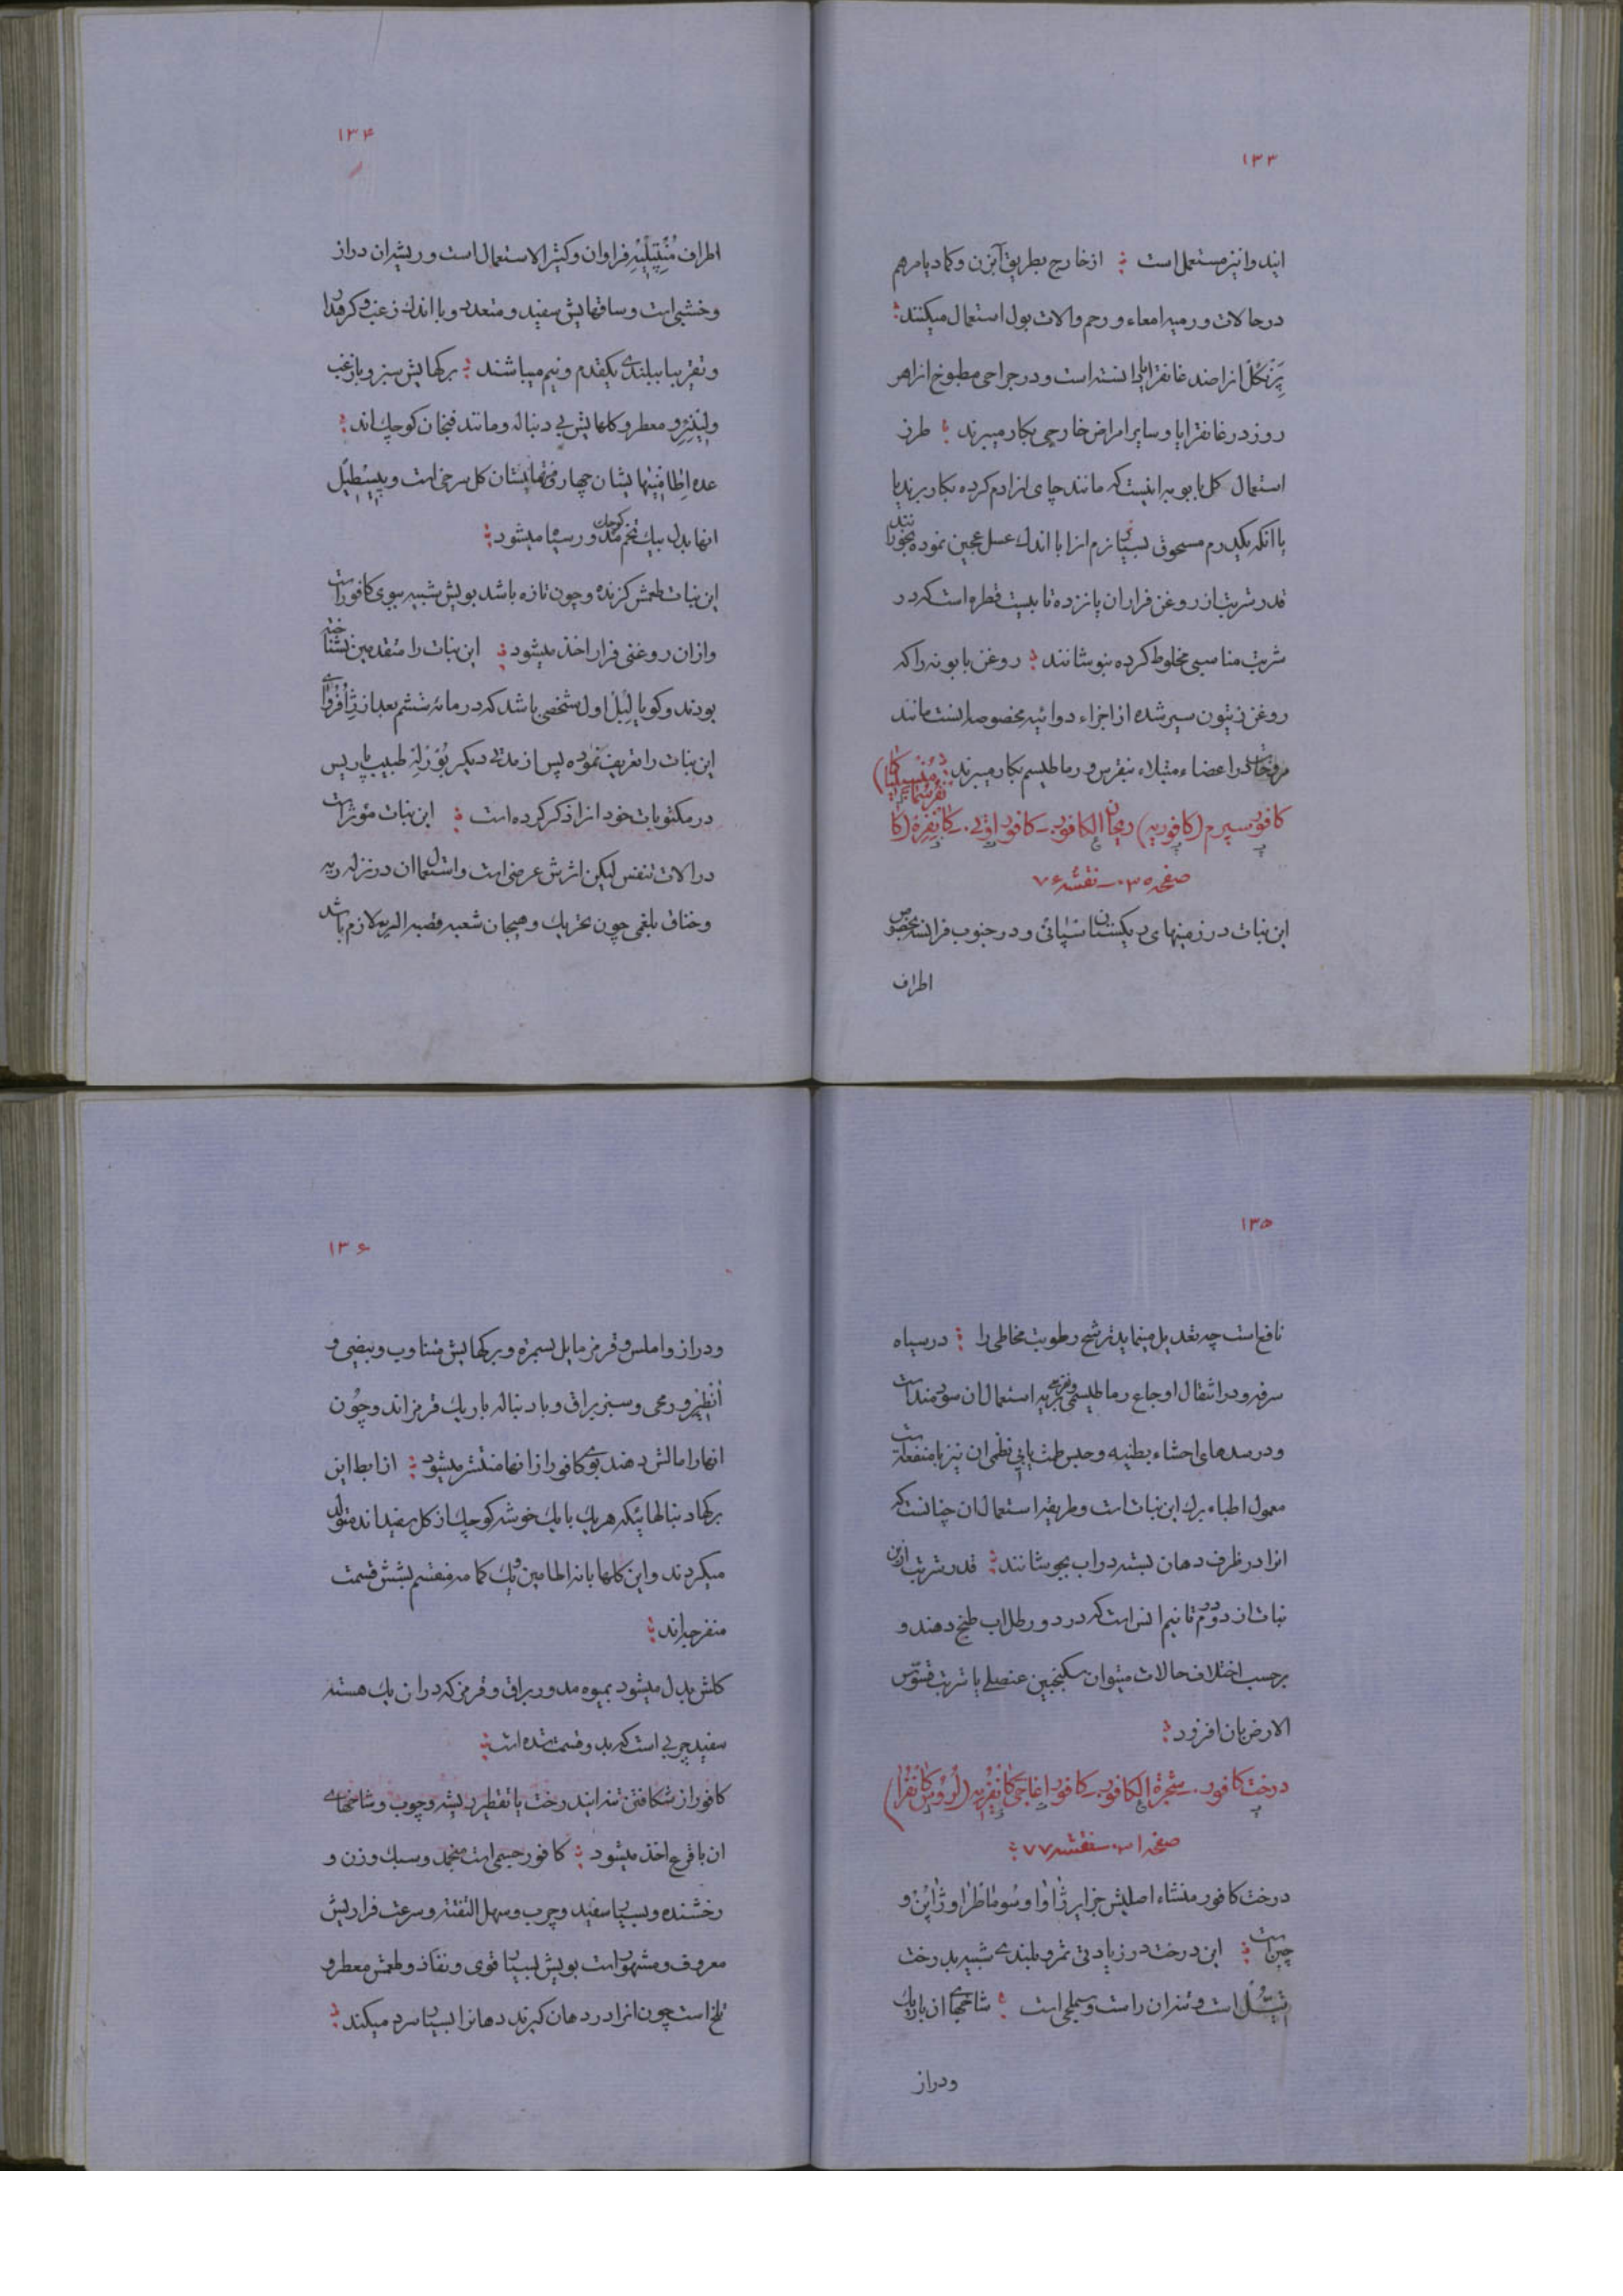 ۱۳۳
اید و انیز مستعمل است از خارج بطریق آبزن و کماد یا مرهم
در حالات ورمیه امعاء و رحم و الات بول استعمال میکنند
پرنکل انرا ضد غانغرایا دانسته است و در جراحی مطبوخ انرا هر
روز در غانغرایا و سایر امراض خارجی بکار میبرند طرز
استعمال کل بابونه اینست که مانند چای انرا دم کرده بکار برند یا
با انکه یکدرم مسحوق بسیار نرم انرا با اندك عسل عجین نموده بخورانند
قدر شربت از روغن فرار ان پانزده تا بیست قطره است که در
شربت مناسبی مخلوط کرده بنوشانند روغن بابونه را که
روغن زیتون سیر شده از اجزاء دوائیه مخصوصه انست مانند
مروخات در اعضاء مبتلاء بنقرس و رماطیسم بکار میبرند
کافور سپرم (کافوریه) ریحان الکافور ـ کافور اوتی ـ کانفره (کا
نفرسما
صفحه ۳۰ ـ نقشه ۷۶
این نبات در زمینهای ریکستان اسپانی و در جنوب فرانسه بخصوص
اطراف
۱۳۴
اطراف منتپلیه فراوان و کثیر الاستعمال است و ریشه ان دراز
و خشبی است و ساقهایش سفید و متعدد و با اندك زغب و کرهدار
و تقریبا ببلندی یکقدم و نیم میباشند برکهایش سبز و با زغب
و لینئر و معطر و کلهایش بی دنباله و مانند فنجان کوچك اند
عده اطامینهایشان چهار و منتهایشان کل سرخی است و پیسطیل
انها بدل بیك تخم کوچك مدور سیاه میشود
این نبات طعمش کزنده و چون تازه باشد بویش شبیه ببوی کافور است
و از ان روغنی فرار اخذ میشود این نبات را متقدمین نشناخته
بودند و کویا لبل اول شخصی باشد که در مائه ششم بعد از
این نبات را تعریف نموده پس از مدتی دیکر بورله طبیب پاریس
در مکتوبات خود انرا ذکر کرده است این نبات مؤثر است
در الات تنفس لیکن اثرش عرضی است و استعمال ان در نزله ریه
و خناق بلغمی چون تحریك و هیجان شعبه قصبه الریه لازم باشد
۱۳۵
نافع است چه تعدیل مینماید ترشح رطوبت مخاطی را در سیاه
سرفه و در انتقال اوجاع رماطیسمی و نقرسی بریه استعمال ان سودمند است
و در سدهای احشاء بطنیه و حبس طمث یا بی نظمی ان نیز با منفعة است
معمول اطباء برك این نبات است و طریقه استعمال ان چنانست که
انرا در ظرف دهان بسته در اب بجوشانند قدر شربت از این
نبات از دو درم تا نیم انس است که در دو رطل اب طبخ دهند و
بر حسب اختلاف حالات میتوان سکنجبین عنصلی یا شربت قسوس
الارض بان افزود
درخت کافور ـ شجرة الکافور ـ کافور اغاجی کانفریه (لوروس کانفرا)
صفحه ۳۱ ـ نقشه ۷۷
درخت کافور منشاء اصلیش جزایر ژاوا و سوماطرا و ژاپن و
چین است این درخت در زیادتی ثمر و بلندی شبیه بدرخت
تییّل است و تنه ان راست و سملجی است شاخهای ان باریك
و دراز
۱۳۶
و دراز و املس و قرمز مایل بسمرة و برکهایش متناوب و بیضی و
انطیر و رمحی و سبز براق و با دنباله باریك قرمز اند و چون
انها را مالش دهند بوی کافور از انها منتشر میشود از ابط این
برکها دنبالهائیکه هر یك با یك خوشه کوچك از کل سفید اند متولد
میکردند و این کلها با نه اطامین و یك کامه منقسم بشش قسمت
منفرجه اند
کلش بدل میشود بمیوه مدور براق و قرمز که در ان یك هسته
سفید چربی است که بدو قسمت شده است
کافور از شکافتن تنه ایندرخت یا تقطیر ریشه و چوب و شاخهای
ان با قرع اخذ میشود کافور جسمی است منجمد و سبك وزن و
رخشنده و بسیار سفید و چرب و سهل التفتته و سرعت فراریش
معروف و مشهور است بویش بسیار قوی و نفاذ و طعمش معطر و
تلخ است چون انرا در دهان کیرند دهانرا بسیار سرد میکند